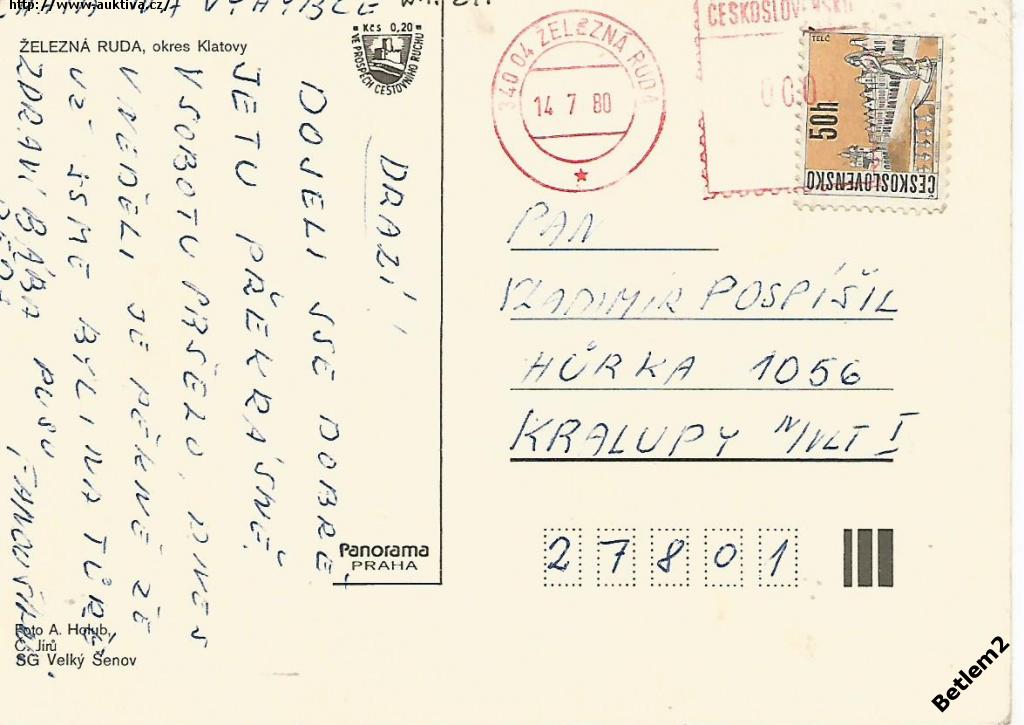 http://www.auktiva.cz/
VÝHYBCE
ŽELEZNÁ RUDA, okres Klatovy
Kčs 0,20
VE PROSPĚCH CESTOVNÍHO RUCHU
DRAZÍ!
DOJELI VŠE DOBRE,
JE TU PŘEKRÁSNĚ.
V SOBOTU PRŠELO, DNES
V NEDĚLI JE PĚKNĚ ŽE
UŽ JSME BYLI NA TÚRE,
ZDRAVÍ BÁBA
DĚDA
Panorama
PRAHA
Foto A. Holub,
Č. Jírů
SG Velký Šenov
340 04 ŽELEZNÁ RUDA
14 7 80
ČESKOSLOVENSKO
TELČ
50h
ČESKOSLOVENSKO
PAN
VLADIMÍR POSPÍŠIL
HŮRKA 1056
KRALUPY N/VLT I
27801
Betlem2